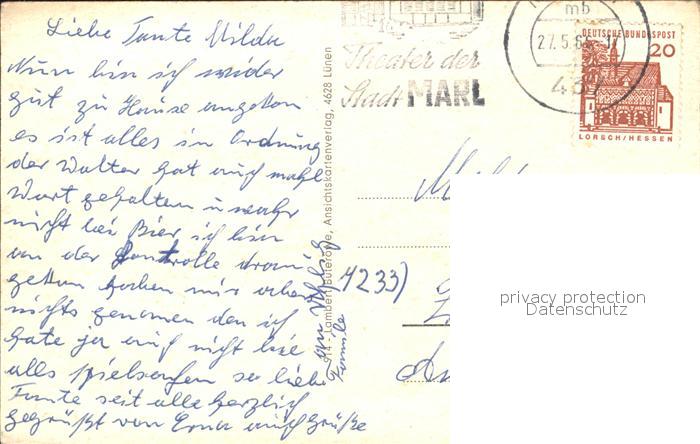 Liebe Tante Milda
Nun bin ich wieder
gut zu Hause angekom
es ist alles in Ordnung
der Walter hat auch mahl
Wort gehalten u wahr
nicht bei Bier ich bin
an der Kontrolle dran
haben mir aber
nichts genomen den ich
hate ja auch nicht
alles Spielsachen so liebe
Tante seit alle herzlich
gegrüßt von Erna auch Grüße
an
Familie
914 - Lambert Buteröwe, Ansichtskartenverlag, 4628 Lünen
Theater der
Stadt MARL
mb
27.5.65
DEUTSCHE BUNDESPOST
20
LORSCH/HESSEN
4233)
privacy protection
Datenschutz